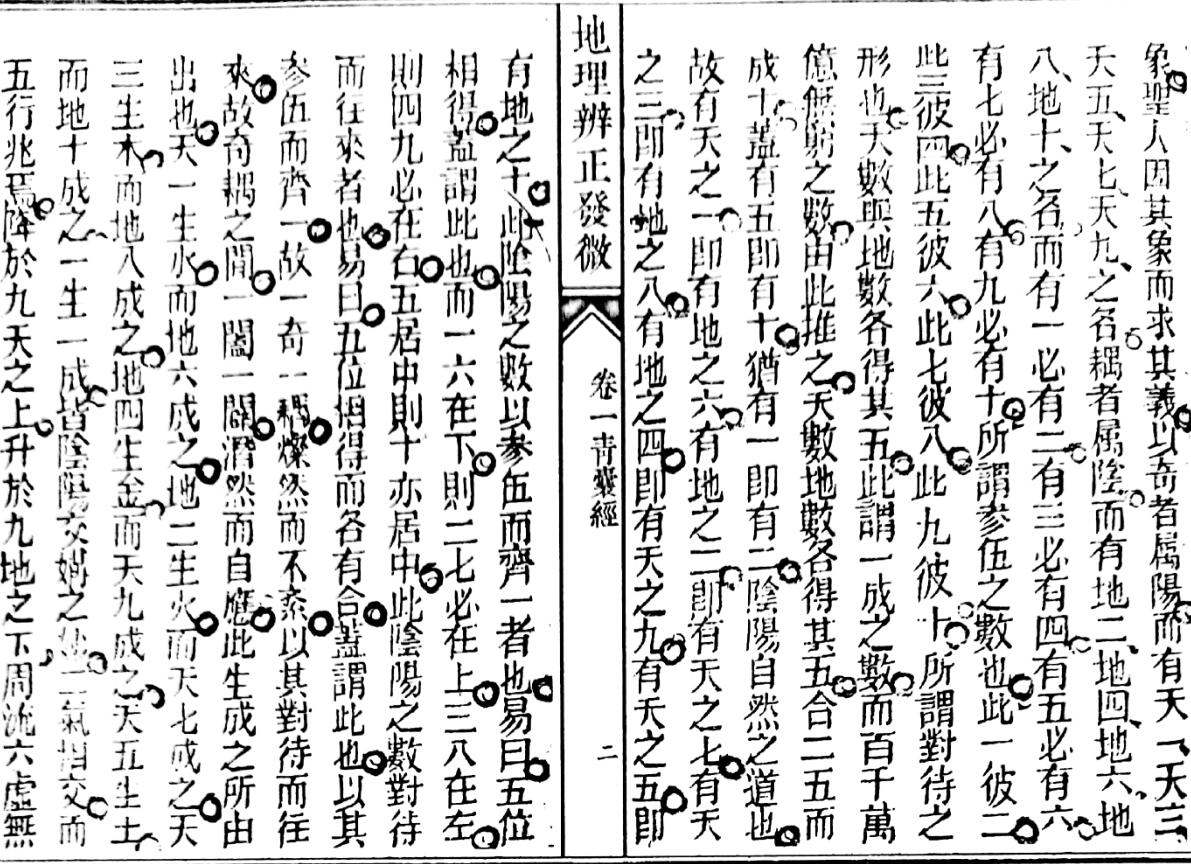 象聖人因其象而求其義以奇者屬陽而有天一天三
天五天七天九之名耦者屬陰而有地二地四地六地
八地十之名而有一必有二有三必有四有五必有六
有七必有八有九必有十所謂參伍之數也此一彼二
此三彼四此五彼六此七彼八此九彼十所謂對待之
形也天數與地數各得其五此謂一成之數而百千萬
億無窮之數由此推之天數地數各得其五合二五而
成十蓋有五即有十猶有一即有二陰陽自然之道也
故有天之一即有地之六有地之二即有天之七有天
之三即有地之八有地之四即有天之九有天之五即
地理辨正發微
卷一青囊經
二
有地之十此陰陽之數以參伍而齊一者也易曰五位
相得蓋謂此也而一六在下則二七必在上三八在左
則四九必在右五居中則十亦居中此陰陽之數對待
而往來者也易曰五位相得而各有合蓋謂此也以其
參伍而齊一故一奇一耦燦然而不紊以其對待而往
來故奇耦之間一闔一闢潛然而自應此生成之所由
出也天一生水而地六成之地二生火而天七成之天
三生木而地八成之地四生金而天九成之天五生土
而地十成之一生一成皆陰陽交媾之妙二氣相交而
五行兆焉降於九天之上升於九地之下周流六虛無